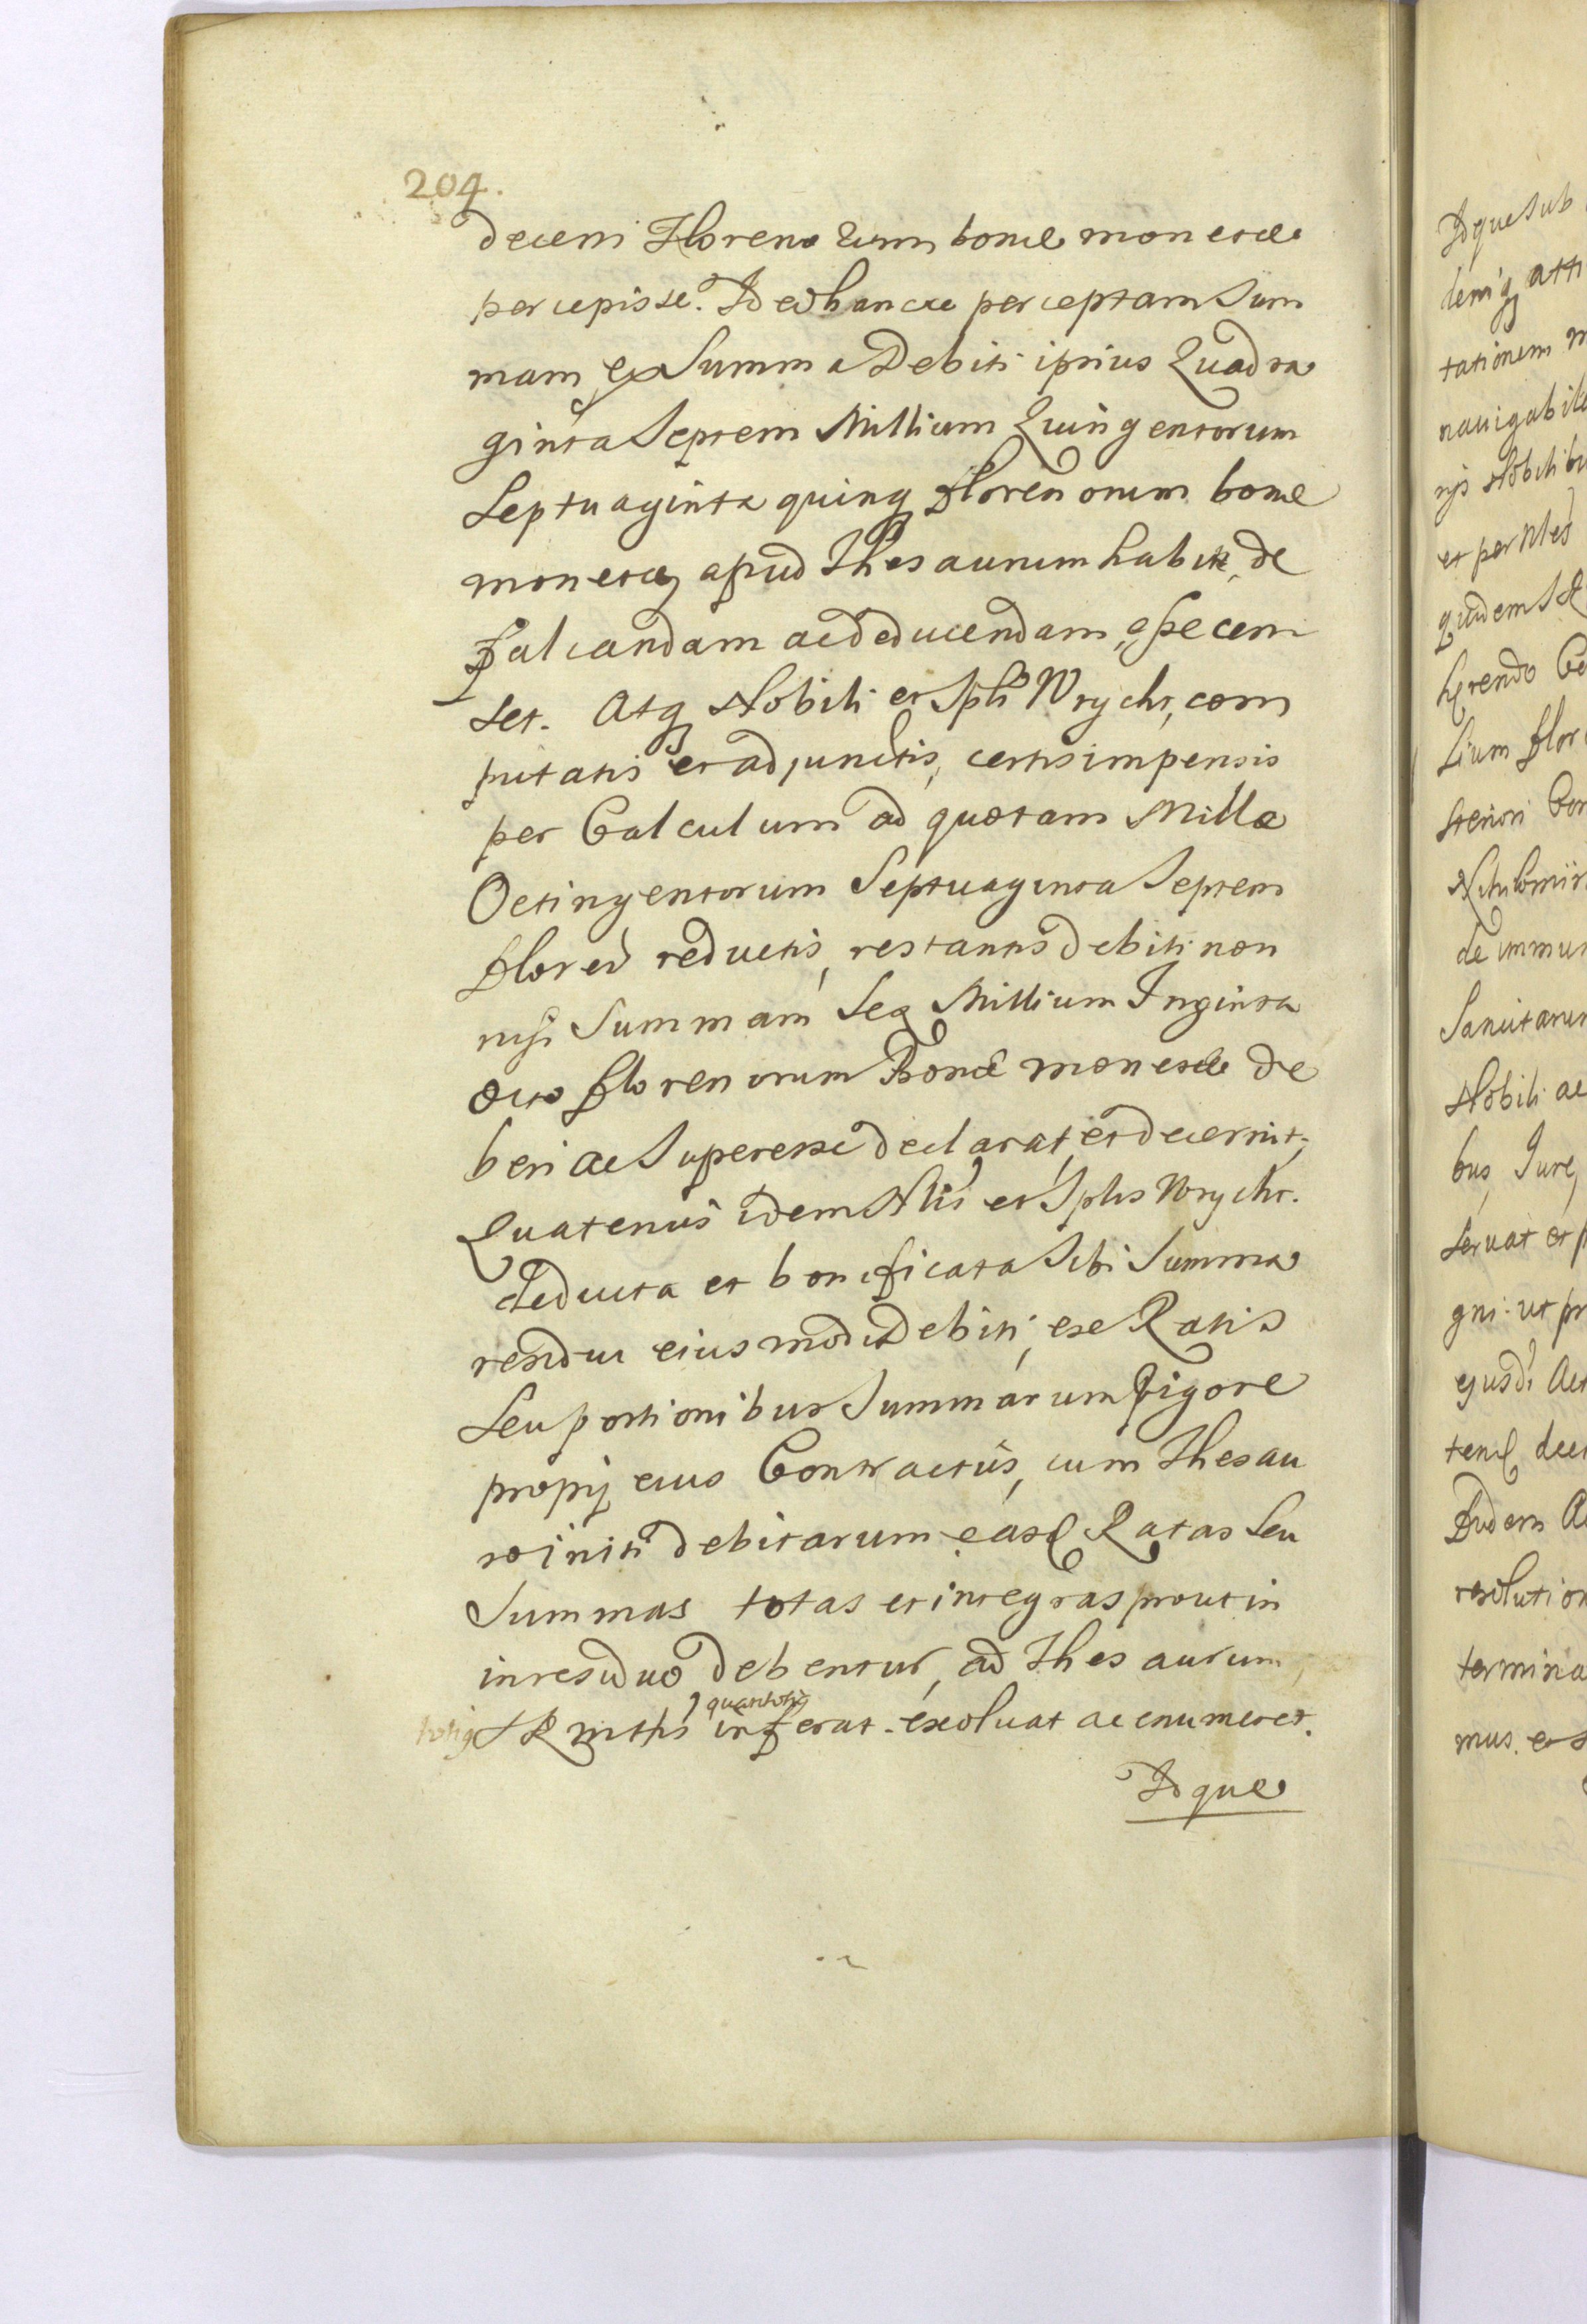 204.
decem Florenorum bonae monetae
percepisse. Ideo hancce perceptam Sum
mam, ex Summa Debiti ipsius Quadra
ginta Septem Millium Quingentorum
Septuaginta quinq Florenorum bonae
monetae, apud Thesaurum habiti, de
falcandam ac deducendam, esse cen
set. Atq Nobili et Spli Wrychr, com
putatis et adjunctis, certis impensis
per Calculum ad quotam Mille
Octingentorum Septuaginta Septem
floren reductis, restantis debiti non
nisi Summam Sex Millium Triginta
octo florenorum Bonae monetae de
beri ac Superesse declarat, et decernit;
Quatenus idem Nlis et Splis Wrychr.
deducta et bonificata Sibi Summa
residui eiusmodi Debiti, ex Ratis
Seu portionibus Summarum Vigore
proprij eius Contractus, cum Thesau
ro initi debitarum, easd Ratas Seu
Summas totas et integras prout in
in residuo debentur, ad Thesaurum,
quantotis
inferat. exoluat ac enumeret.
Idque
Idque Sub
tationem
nauigabile
Nobilibu
et per Nles
quidem
herendo
Sanctarum
Nobili ac
bus, Jure,
Seruat et p
gni. ut pr
resolution
termina
mus. et